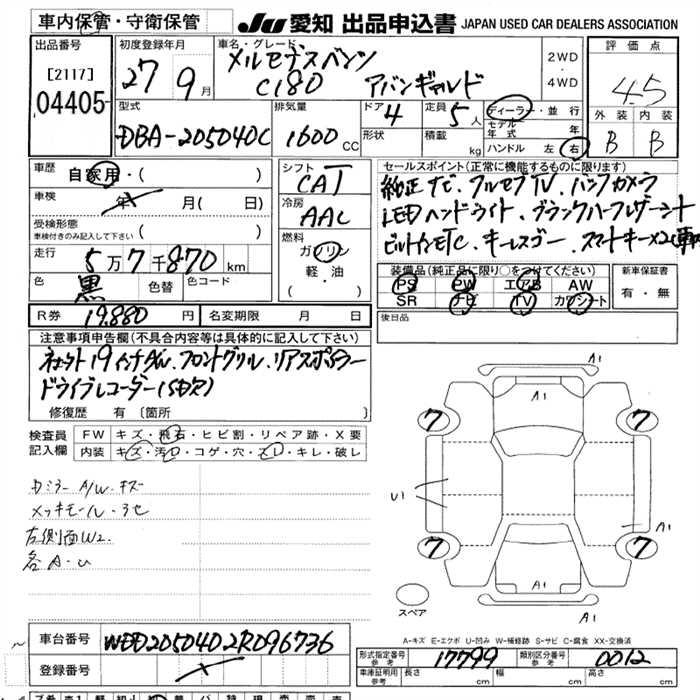 車内保管・守衛保管
JU 愛知 出品申込書 JAPAN USED CAR DEALERS ASSOCIATION
出品番号
[2117]
04405
初度登録年月
27 9 月
車名・グレード
メルセデスベンツ
C180 アバンギャルド
2WD
・
4WD
評価点
4.5
外装 内装
B B
型式
DBA-205040C
排気量
1600 CC
ドア
4
形状
定員
5 人
積載
kg
ディーラー・並行
モデル年式 年
ハンドル 左 右
車歴 自家用・( )
車検 年 月( 日)
受検形態
車検付きのみ記入して下さい ( )
走行 5万7千870 km
色 黒 色替 色コード
R券 19,880 円 名変期限 月 日
シフト
CAT
冷房
AAC
燃料
ガソリン
軽・油
( )
セールスポイント(正常に機能するものに限ります)
純正ナビ.フルセグTV.バックカメラ
LEDヘッドライト.ブラックハーフレザーシート
ビルトインETC.キーレスゴー.スマートキー×2
装備品(純正品に限り○をつけてください)
PS PW エアB AW
SR ナビ TV カワシート
新車保証書
有・無
後日品
注意事項申告欄(不具合内容等は具体的に記入して下さい)
社外19インチAW.フロントグリル.リアスポイラー
ドライブレコーダー(SD欠)
修復歴 有 [箇所 ]
検査員
記入欄
FW キズ・飛石・ヒビ割・リペア跡・X要
内装 キズ・汚レ・コゲ・穴・スレ・キレ・破レ
Dミラー A/W.キズ
メッキモール.ヨセ
左側面W2
各A.U
A1
A1
7 7
U1
A1
7 7
A1
A1
スペア
A-キズ E-エクボ U-凹み W-補修跡 S-サビ C-腐食 XX-交換済
車台番号 WDD2050402R096736
登録番号
形式指定番号
参考
17799
類別区分番号
参考
0012
車庫証明用
参考
長さ cm 幅 cm 高さ cm